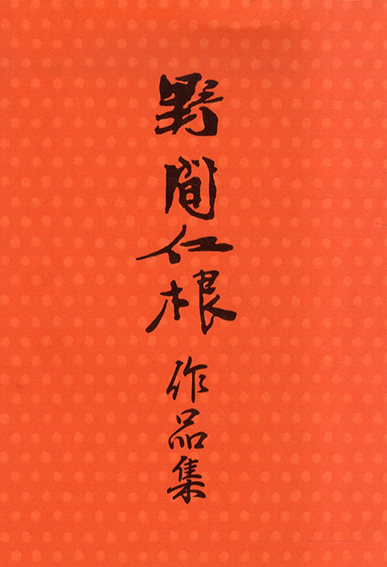 野間仁根作品集